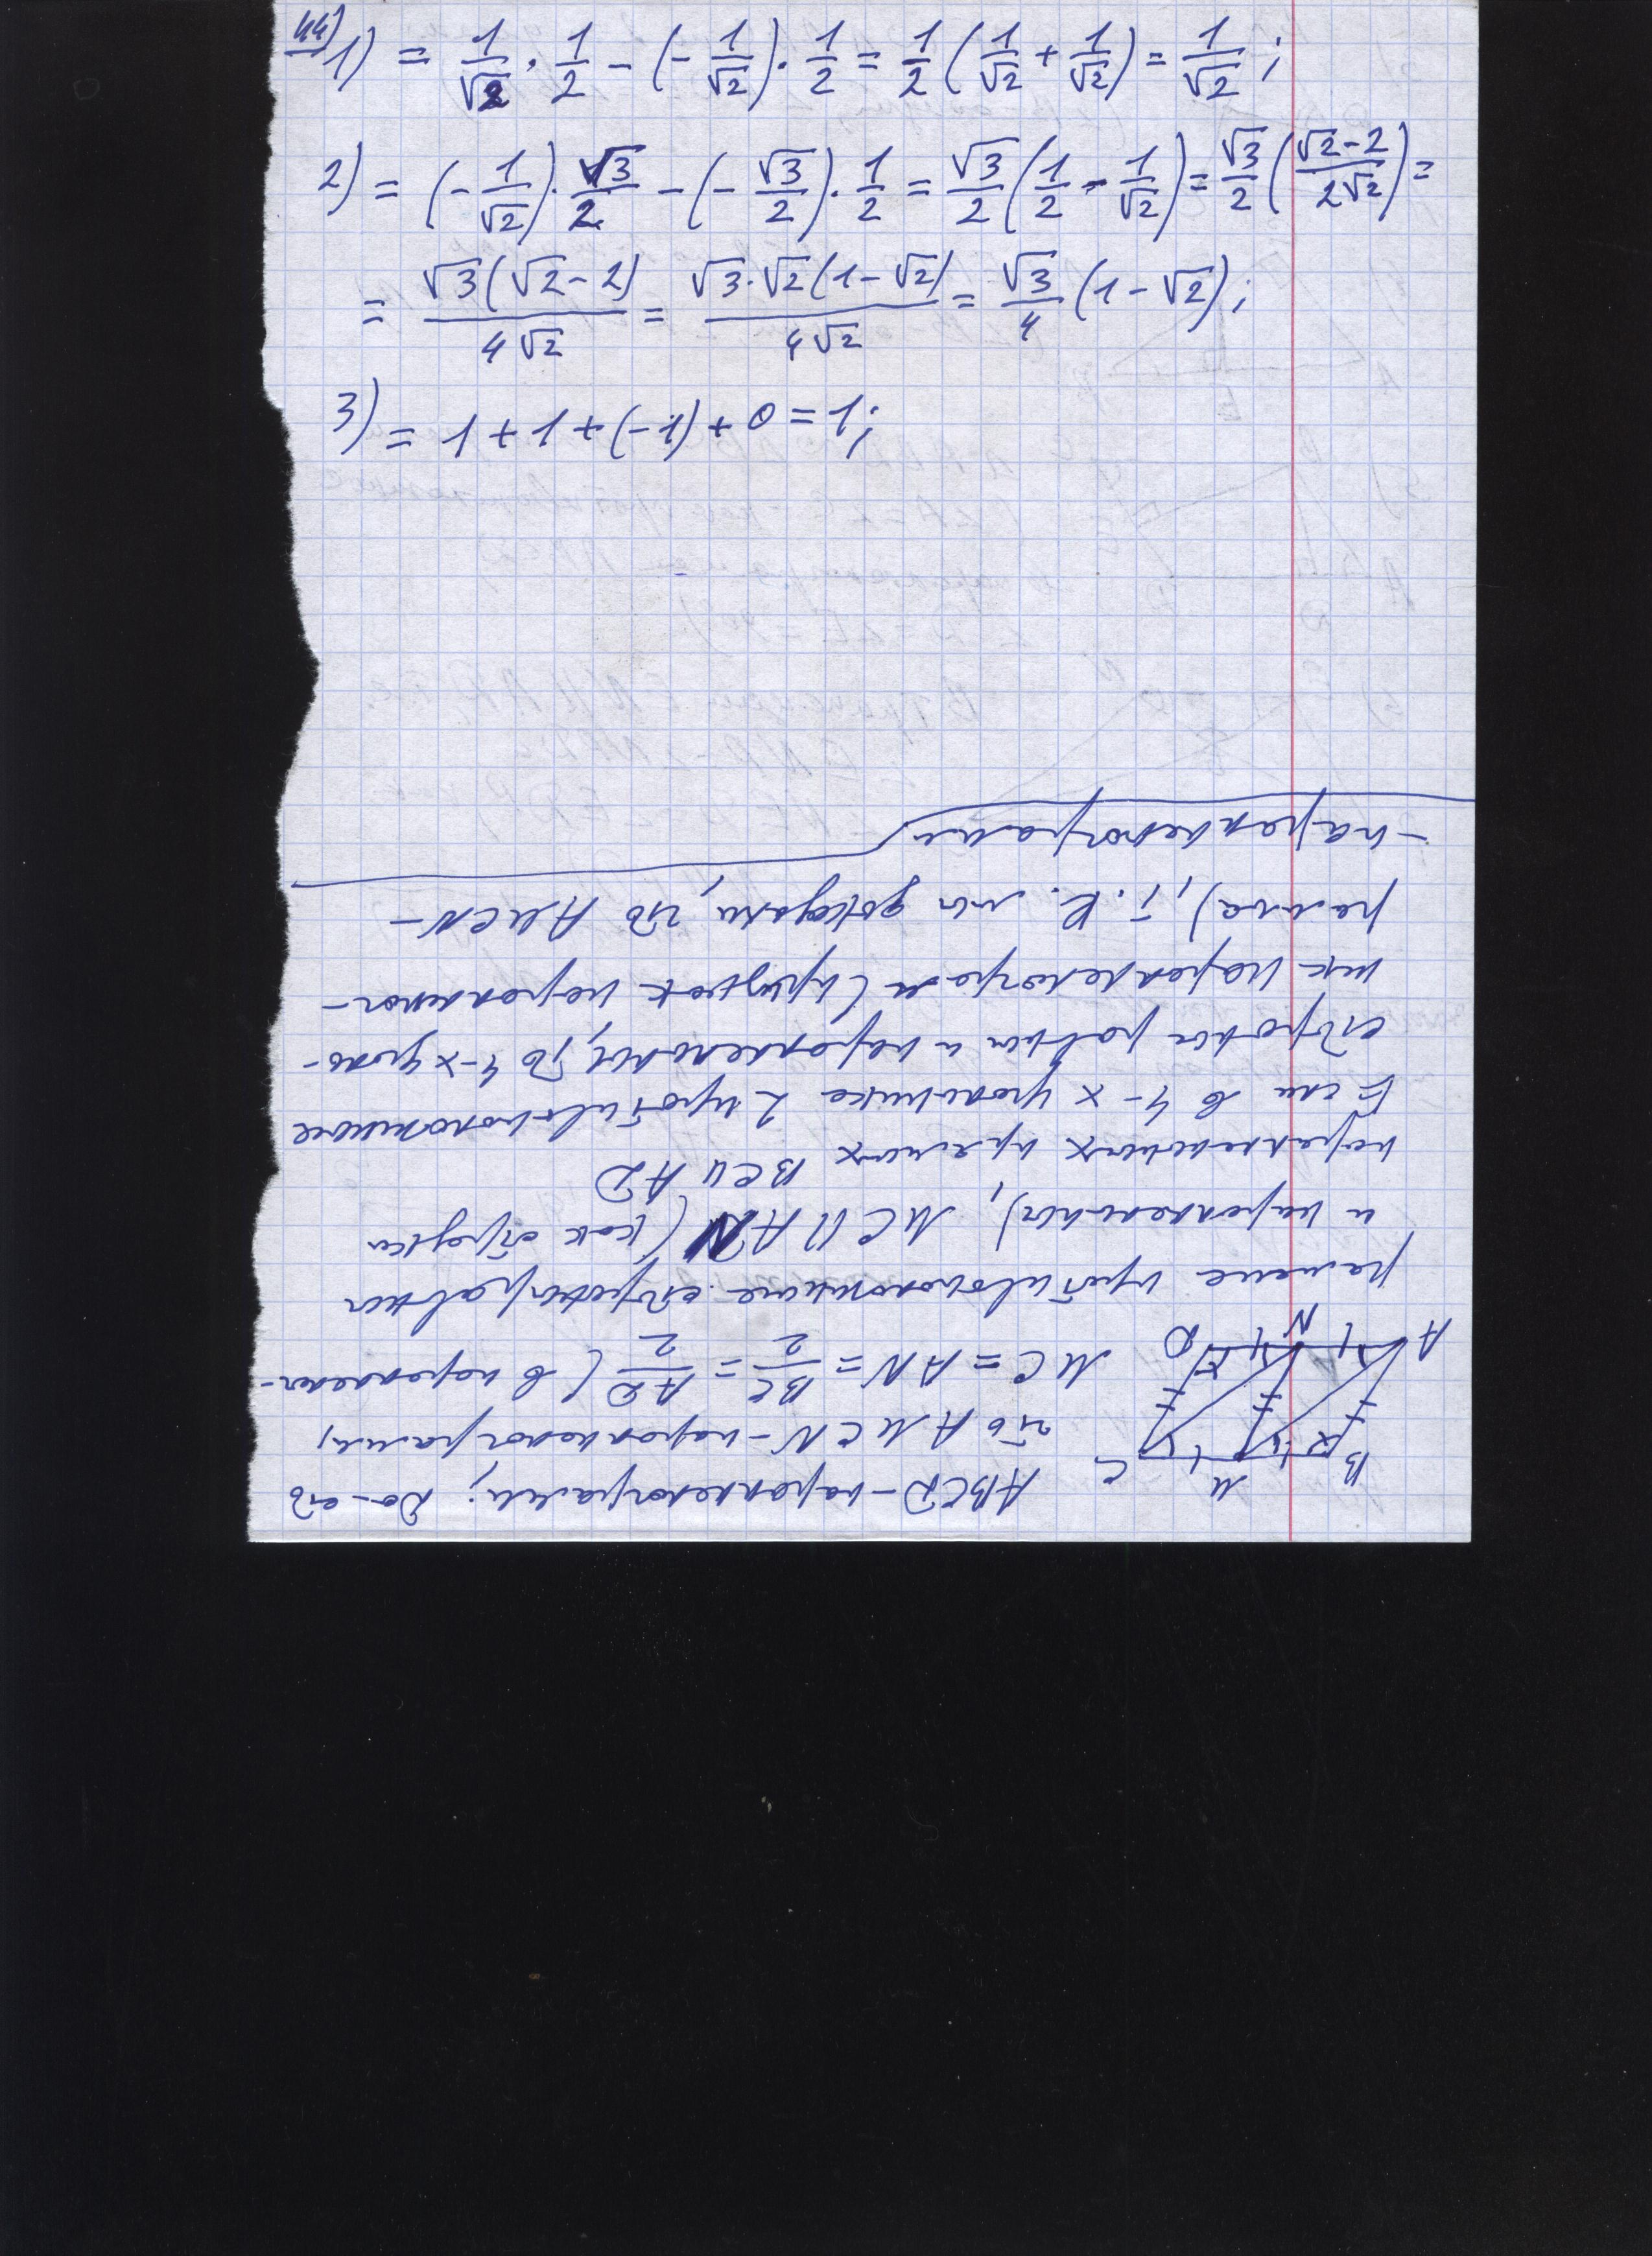 44) 1) = 1/√2 · 1/2 - (- 1/√2) · 1/2 = 1/2 (1/√2 + 1/√2) = 1/√2 ;
2) = (- 1/√2) · √3/2 - (- √3/2) · 1/2 = √3/2 (1/2 - 1/√2) = √3/2 ((√2-2)/(2√2)) =
= √3(√2-2)/(4√2) = √3·√2(1-√2)/(4√2) = √3/4 (1-√2) ;
3) = 1 + 1 + (-1) + 0 = 1;
ABCD - параллелограмм; До-ть
что AMCN - параллелограмм,
MC = AN = BC/2 = AD/2 (в параллелог-
рамме противоположные стороны равны
и параллельны), MC || AN (как отрезки
параллельных прямых BC и AD
Если в 4-х угольнике 2 противоположные
стороны равны и параллельны, то 4-х уголь-
ник параллелограмм (признак параллелог-
рамма), т.к. мы доказали, что AMCN -
- параллелограмм
B M C
A N D